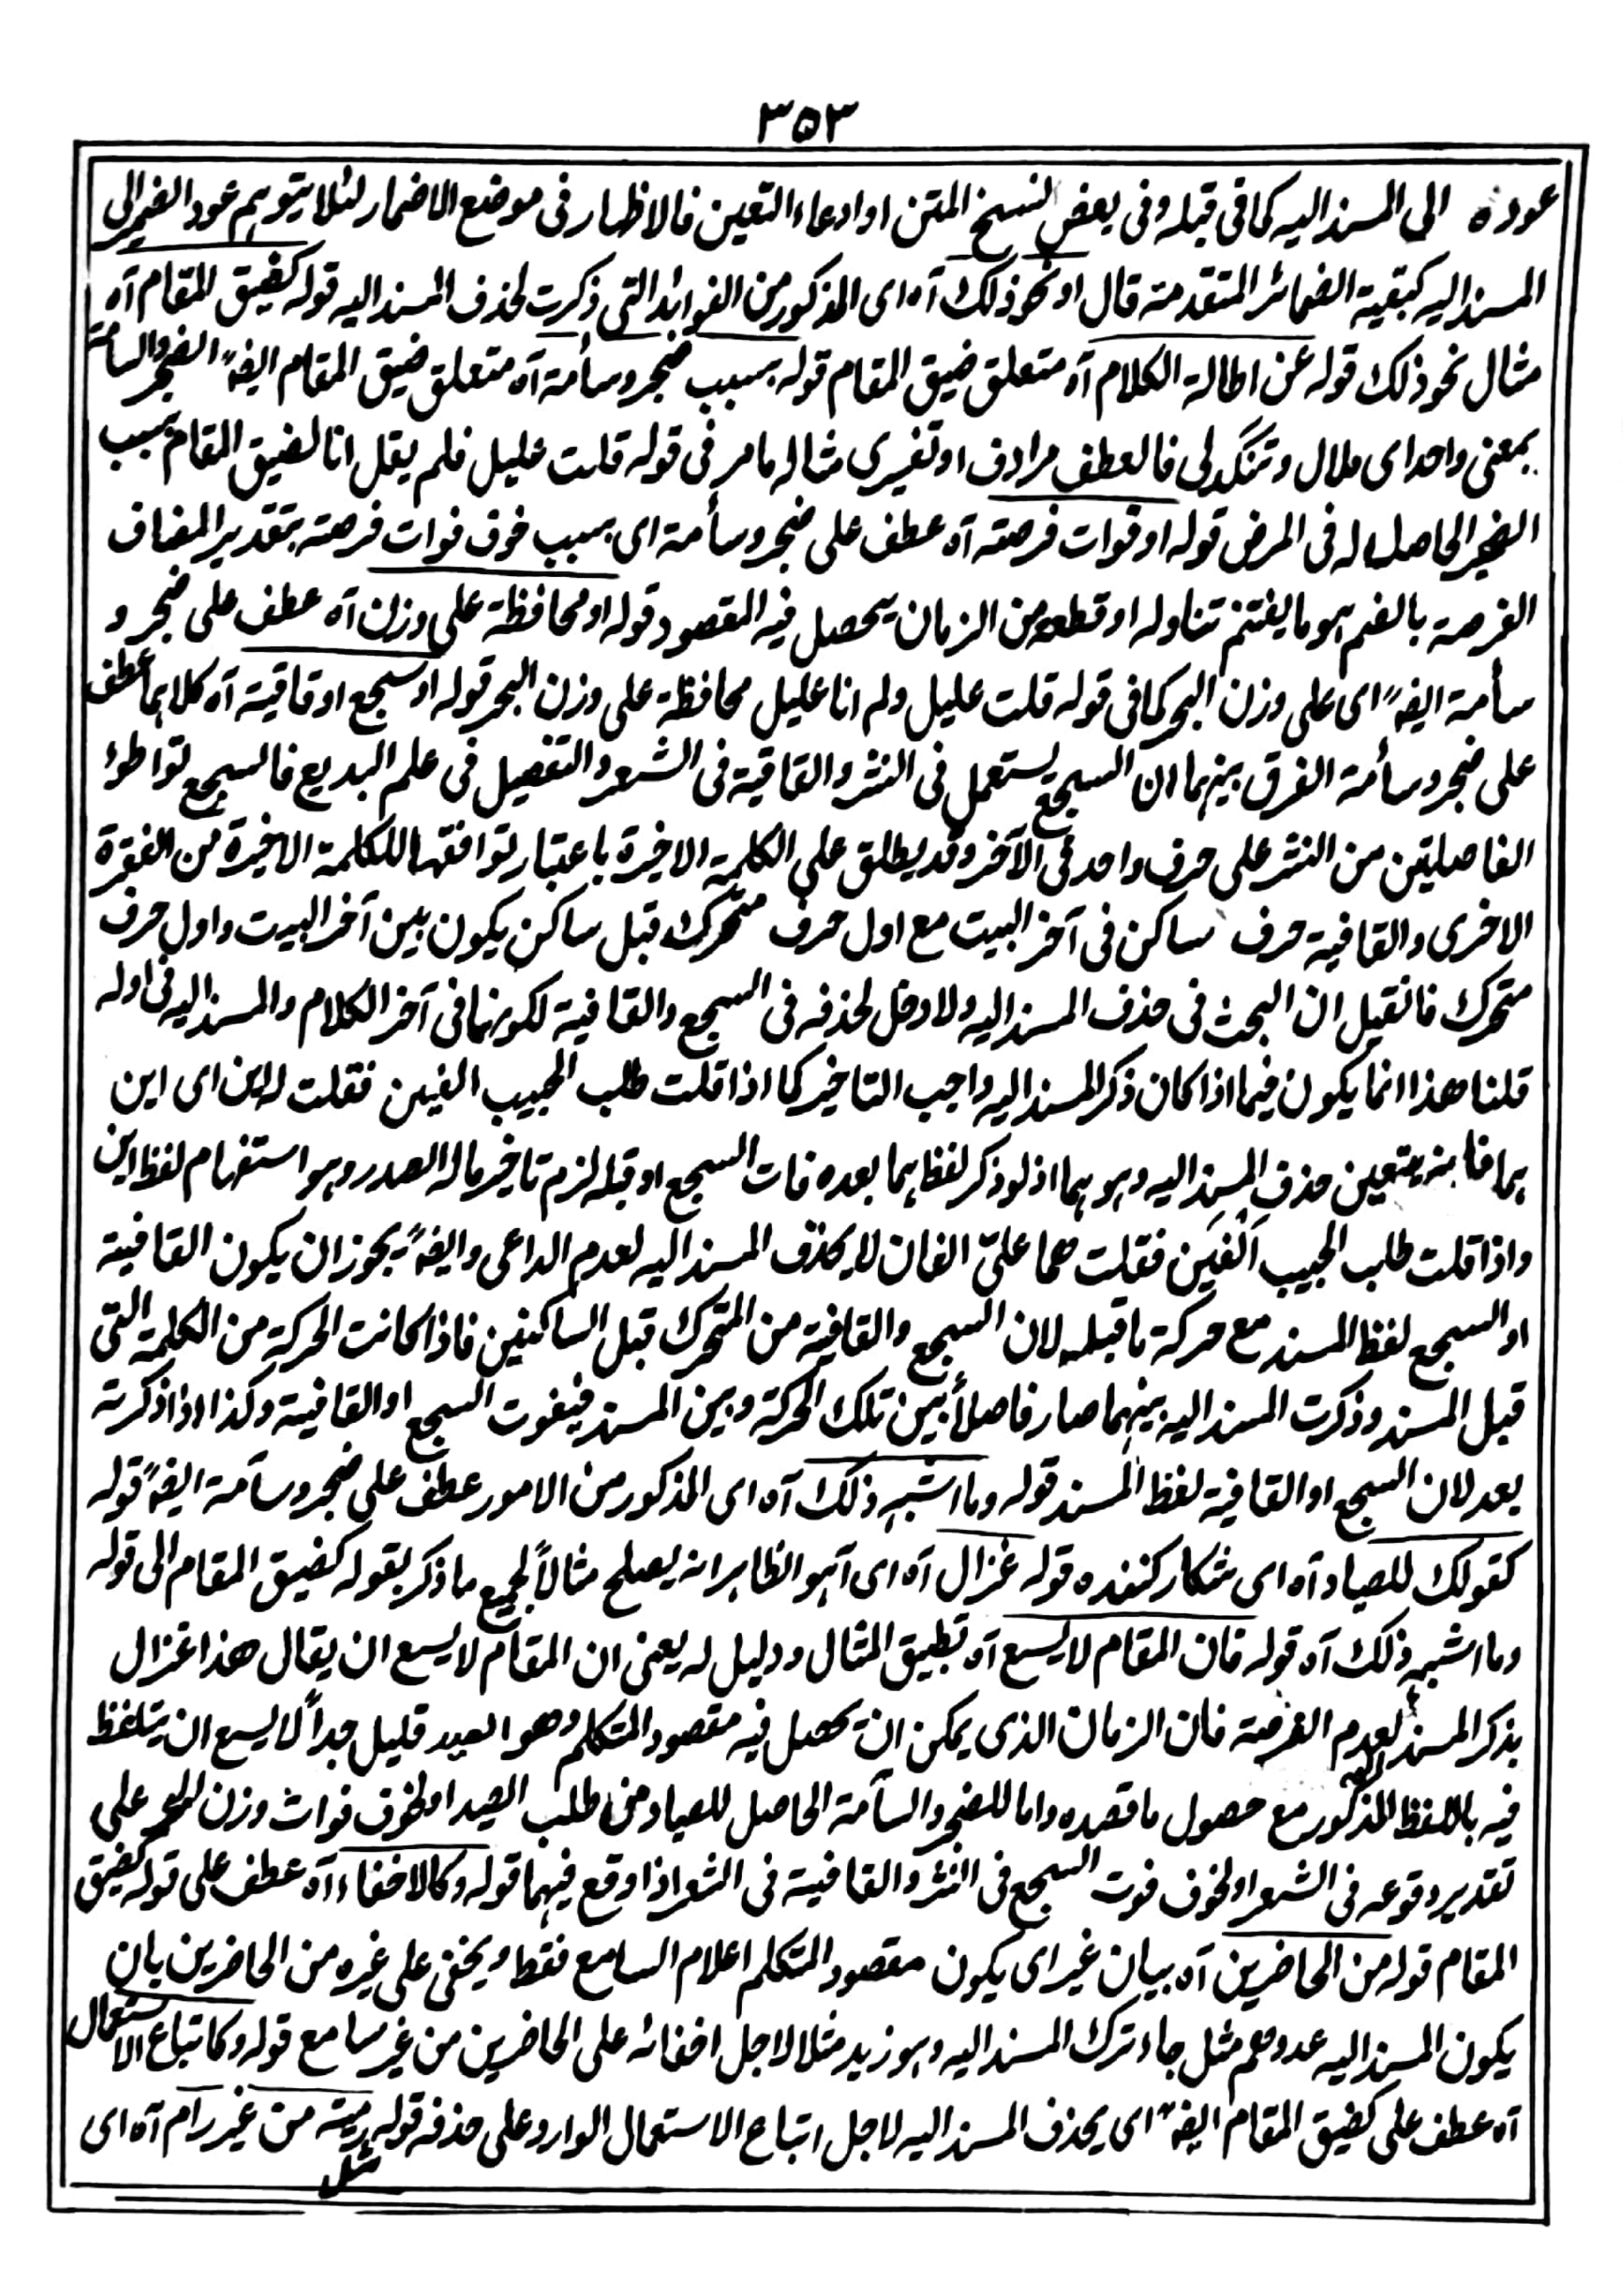 ٣٥٣
عوده الى المسند اليه كما فى قبله وفى بعض النسخ المتن او ادعاء التعين فالاظهار فى موضع الاضمار لئلا يتوهم عود الضمير الى
المسند اليه كبقية الضمائر المتقدمة قال او نحو ذلك آه اى المذكور من الفوائد التى ذكرت لحذف المسند اليه قوله كضيق المقام آه
مثال نحو ذلك قوله عن اطالة الكلام آه متعلق ضيق المقام قوله بسبب ضجر وسأمة آه متعلق ضيق المقام ايضاً الضجر والسأمة
بمعنى واحد اى ملال وتنگدلى فالعطف مرادف او تفسيرى مثاله مامر فى قوله قلت عليل فلم يقل انا لضيق المقام بسبب
الضجر الحاصل له فى المرض قوله او فوات فرصة آه عطف على ضجر وسأمة اى بسبب خوف فوات فرصة بتقدير المضاف
الفرصة بالضم هو ما يغتنم تناوله او قطعه من الزمان يحصل فيه المقصود قوله او محافظة على وزن آه عطف على ضجر و
سأمة ايضاً اى على وزن البحر كما فى قوله قلت عليل ولم انا عليل محافظة على وزن البحر قوله او سجع او قافية آه كلاهما عطف
على ضجر وسأمة الفرق بينهما ان السجع يستعمل فى النثر والقافية فى الشعر والتفصيل فى علم البديع فالسجع تواطؤ
الفاصلتين من النثر على حرف واحد فى الآخر وقد يطلق على الكلمة الاخيرة باعتبار توافقها للكلمة الاخيرة من الفقرة
الاخرى والقافية حرف ساكن فى آخر البيت مع اول حرف متحرك قبل ساكن يكون بين آخر البيت واول حرف
متحرك فانقيل ان البحث فى حذف المسند اليه ولا دخل لحذفه فى السجع والقافية لكونهما فى آخر الكلام والمسند اليه فى اوله
قلنا هذا انما يكون فيما اذا كان ذكر المسند اليه واجب التاخير كما اذا قلت طلب الحبيب الفين فقلت له اين اى اين
هما فانه يتعين حذف المسند اليه وهو هما اذ لو ذكر لفظ هما بعده فات السجع او قبله لزم تاخير ماله الصدر وهو استفهام لفظ اين
واذا قلت طلب الحبيب الفين فقلت هما علىّ الفان لا يحذف المسند اليه لعدم الداعى وايضاً يجوز ان يكون القافية
او السجع لفظ المسند مع حركة ما قبله لان السجع والقافية من المتحرك قبل الساكنين فاذا كانت الحركة من الكلمة التى
قبل المسند وذكرت المسند اليه بينهما صار فاصلاً بين تلك الحركة وبين المسند فيفوت السجع او القافية وكذا اذا ذكرته
بعد لان السجع او القافية لفظ المسند قوله وما اشبه ذلك آه اى المذكور من الامور عطف على ضجر وسآمة ايضاً قوله
كقولك للصياد آه اى شكار كننده قوله غزال آه اى آهو الظاهر انه يصلح مثالاً لجميع ما ذكر بقوله كضيق المقام الى قوله
وما اشبه ذلك آه قوله فان المقام لا يسع آه تطبيق المثال ودليل له يعنى ان المقام لا يسع ان يقال هذا غزال
بذكر المسند اليه لعدم الفرصة فان الزمان الذى يمكن ان يحصل فيه مقصود المتكلم وهو الصيد قليل جداً لا يسع ان يتلفظ
فيه باللفظ المذكور مع حصول ما قصده واما للضجر والسآمة الحاصل للصياد من طلب الصيد او لخوف فوات وزن البحر على
تقدير وقوعه فى الشعر او لخوف فوت السجع فى النثر والقافية فى الشعر اذا وقع فيهما قوله وكالاخفاء آه عطف على قوله كضيق
المقام قوله من الحاضرين آه بيان غير اى يكون مقصود المتكلم اعلام السامع فقط ويخفى على غيره من الحاضرين بان
يكون المسند اليه عدوهم مثل جاء وترك المسند اليه وهو زيد مثلا لاجل اخفائه على الحاضرين من غير سامع قوله وكاتباع الاستعمال
آه عطف على كضيق المقام ايضاً اى يحذف المسند اليه لاجل اتباع الاستعمال الوارد على حذفه قوله رمية من غير رام آه اى
مثل